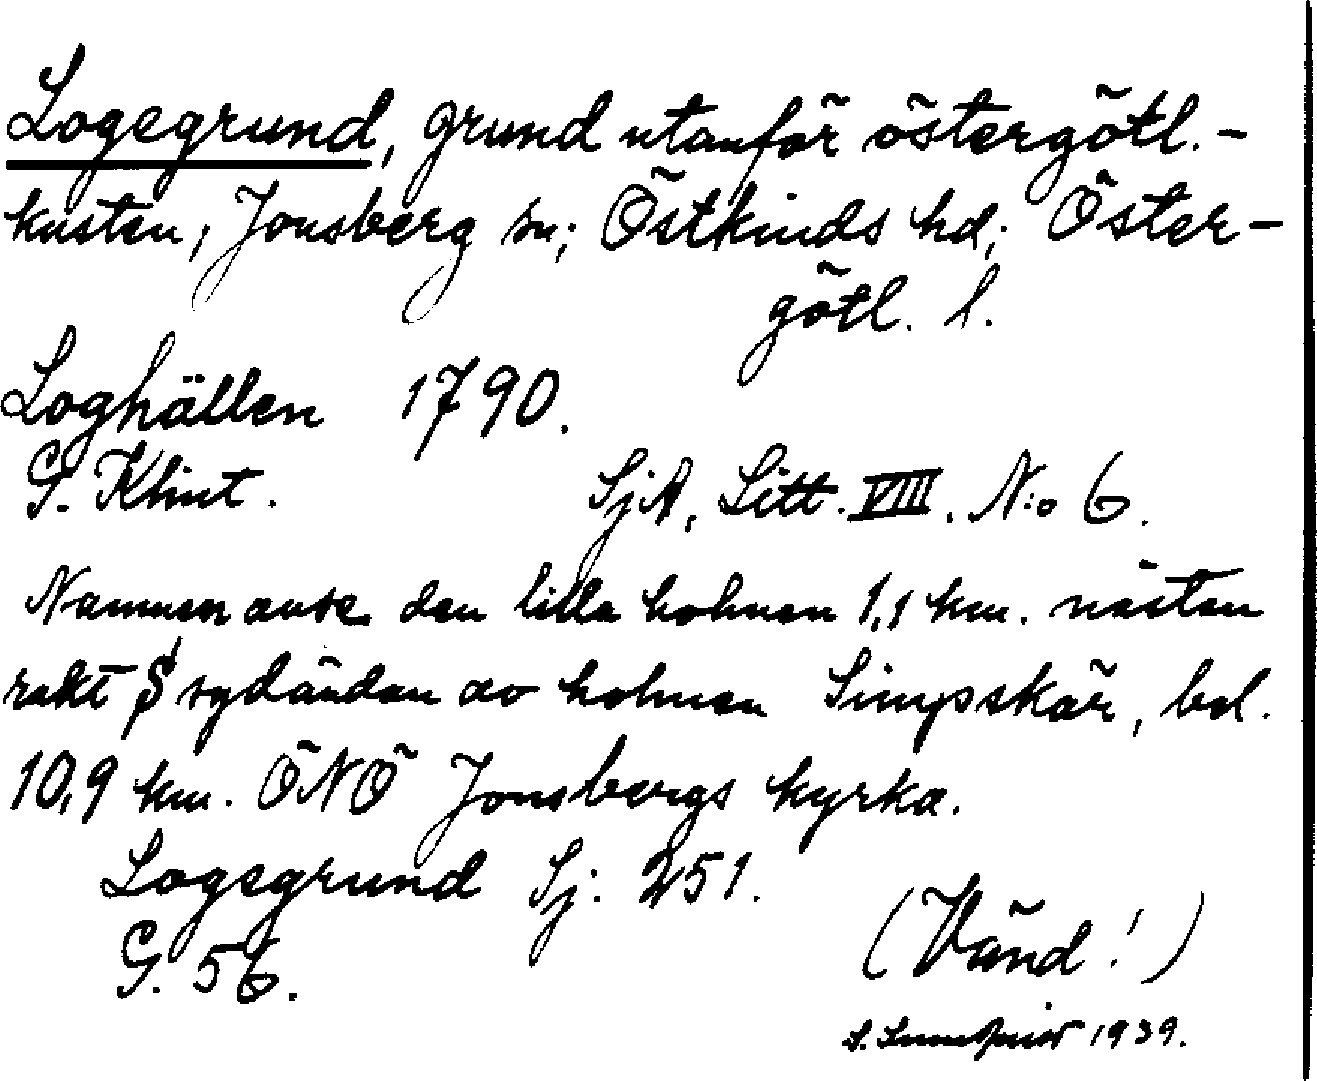 Logegrund, grund utanför östergötl.-
kusten, Jonsberg sn; Östkinds hd; Öster-
götl. l.
Loghällen 1790.
G. Klint. SjA, Litt. VIII. N:o 6.
Namnen avse den lilla holmen 1,1 km. nästan
rakt S sydändan av holmen Limpskär, bel.
10,9 km. ÖNÖ Jonsbergs kyrka.
Logegrund Sj. 251.
G. 56.
(Vänd!)
S. 1939.